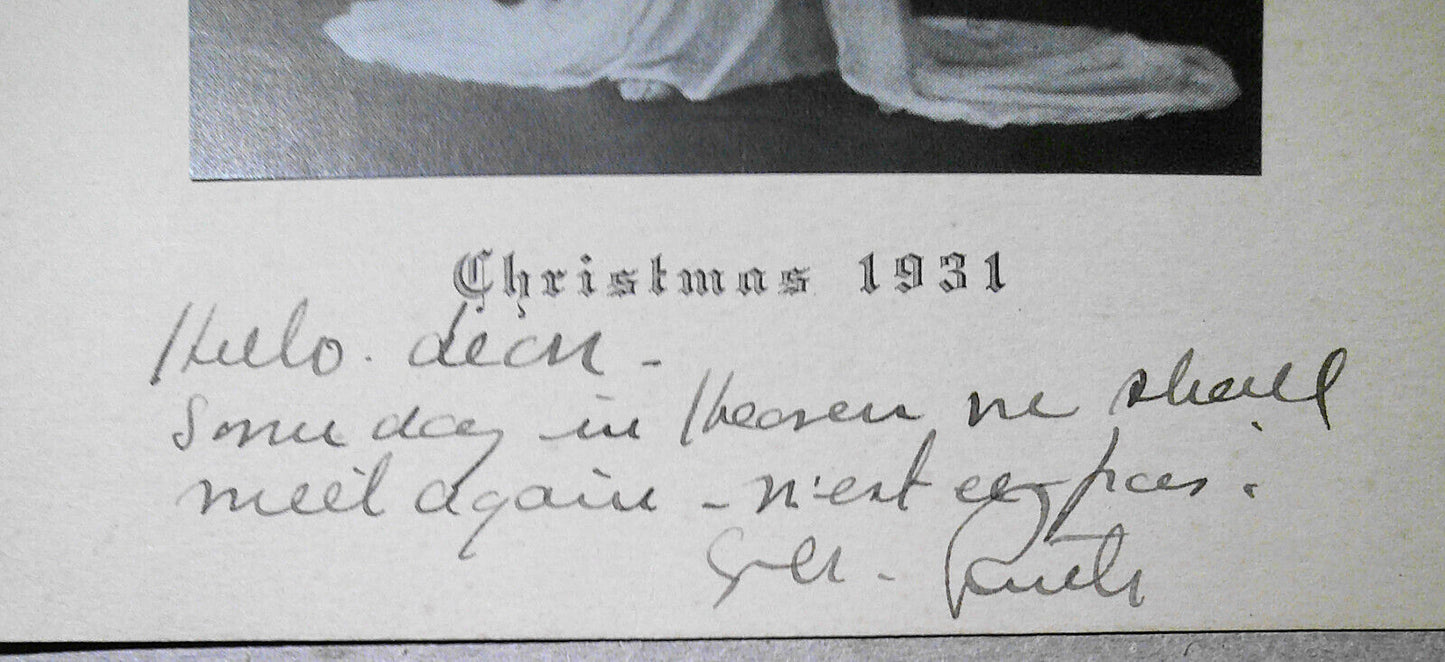 Christmas 1931
Hello. dear -
Some day in Heaven we shall
meet again - n'est ce pas.
Ruth